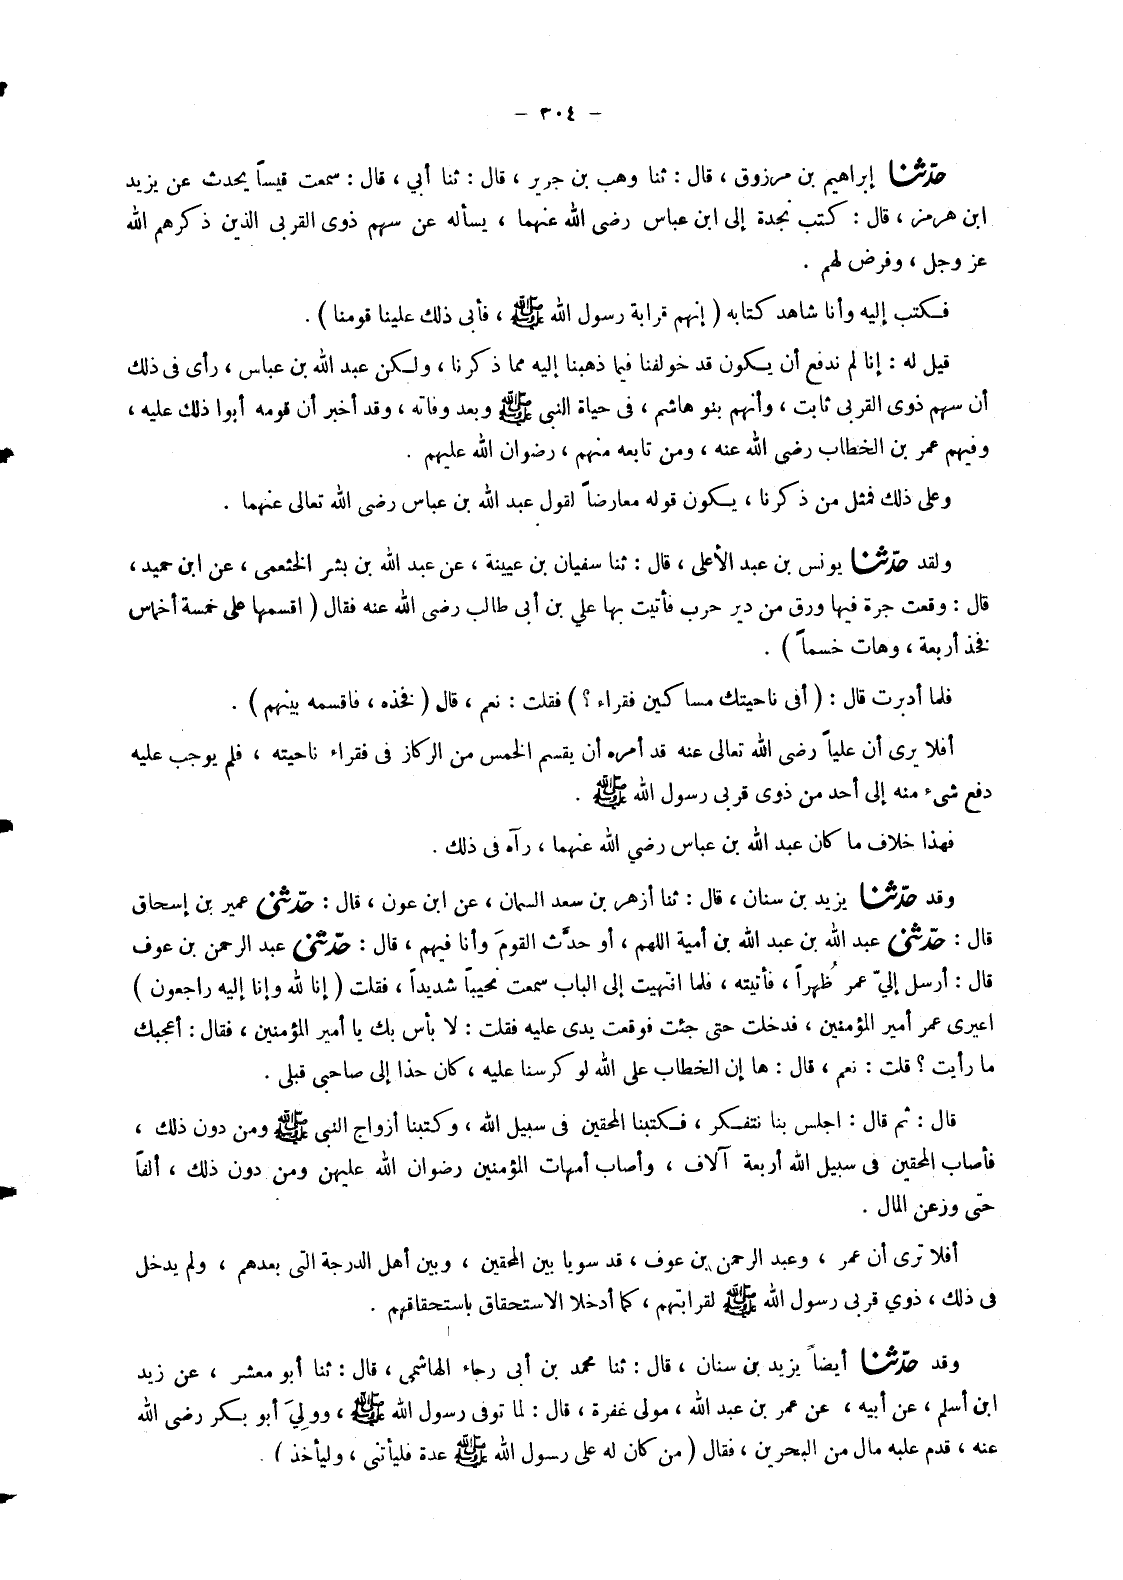 – ٣٠٤ –
حدّثنا إبراهيم بن مرزوق ، قال : ثنا وهب بن جرير ، قال : ثنا أبي ، قال : سمعت قيساً يحدث عن يزيد
ابن هرمز ، قال : كتب نجدة إلى ابن عباس رضى الله عنهما ، يسأله عن سهم ذوى القربى الذين ذكرهم الله
عز وجل ، وفرض لهم .
فكتب إليه وأنا شاهد كتابه ( إنهم قرابة رسول الله ﷺ ، فأبى ذلك علينا قومنا ) .
قيل له : إنا لم ندفع أن يكون قد خولفنا فيما ذهبنا إليه مما ذكرنا ، ولكن عبد الله بن عباس ، رأى فى ذلك
أن سهم ذوى القربى ثابت ، وأنهم بنو هاشم ، فى حياة النبى ﷺ وبعد وفاته ، وقد أخبر أن قومه أبوا ذلك عليه ،
وفيهم عمر بن الخطاب رضى الله عنه ، ومن تابعه منهم ، رضوان الله عليهم .
وعلى ذلك فمثل من ذكرنا ، يكون قوله معارضاً لقول عبد الله بن عباس رضى الله تعالى عنهما .
ولقد حدّثنا يونس بن عبد الأعلى ، قال : ثنا سفيان بن عيينة ، عن عبد الله بن بشر الخثعمى ، عن ابن حميد ،
قال : وقعت جرة فيها ورق من دير حرب فأتيت بها علي بن أبى طالب رضى الله عنه فقال ( اقسمها على خمسة أخماس
فخذ أربعة ، وهات خمساً ) .
فلما أدبرت قال : ( أفى ناحيتك مساكين فقراء ؟ ) فقلت : نعم ، قال ( فخذه ، فاقسمه بينهم ) .
أفلا يرى أن علياً رضى الله تعالى عنه قد أمره أن يقسم الخمس من الركاز فى فقراء ناحيته ، فلم يوجب عليه
دفع شىء منه إلى أحد من ذوى قربى رسول الله ﷺ .
فهذا خلاف ما كان عبد الله بن عباس رضي الله عنهما ، رآه فى ذلك .
وقد حدّثنا يزيد بن سنان ، قال : ثنا أزهر بن سعد السمان ، عن ابن عون ، قال : حدّثنى عمير بن إسحاق
قال : حدّثنى عبد الله بن عبد الله بن أمية اللهم ، أو حدَّث القومَ وأنا فيهم ، قال : حدّثنى عبد الرحمن بن عوف
قال : أرسل إليّ عمر ظُهراً ، فأتيته ، فلما انتهيت إلى الباب سمعت نحيباً شديداً ، فقلت ( إنا لله وإنا إليه راجعون )
اعيرى عمر أمير المؤمنين ، فدخلت حتى جئت فوقعت يدى عليه فقلت : لا بأس بك يا أمير المؤمنين ، فقال : أعجبك
ما رأيت ؟ قلت : نعم ، قال : ها إن الخطاب على الله لو كرسنا عليه ، كان حذا إلى صاحبى قبلى .
قال : ثم قال : اجلس بنا نتفكر ، فكتبنا المحقين فى سبيل الله ، وكتبنا أزواج النبى ﷺ ومن دون ذلك ،
فأصاب المحقين فى سبيل الله أربعة آلاف ، وأصاب أمهات المؤمنين رضوان الله عليهن ومن دون ذلك ، ألفاً
حتى وزعن المال .
أفلا ترى أن عمر ، وعبد الرحمن بن عوف ، قد سويا بين المحقين ، وبين أهل الدرجة التى بعدهم ، ولم يدخل
فى ذلك ، ذوي قربى رسول الله ﷺ لقرابتهم ، كما أدخلا الاستحقاق باستحقاقهم .
وقد حدّثنا أيضاً يزيد بن سنان ، قال : ثنا محمد بن أبى رجاء الهاشمى ، قال : ثنا أبو معشر ، عن زيد
ابن أسلم ، عن أبيه ، عن عمر بن عبد الله ، مولى غفرة ، قال : لما توفى رسول الله ﷺ ، ووليَ أبو بكر رضى الله
عنه ، قدم عليه مال من البحرين ، فقال ( من كان له على رسول الله ﷺ عدة فليأتنى ، وليأخذ ) .